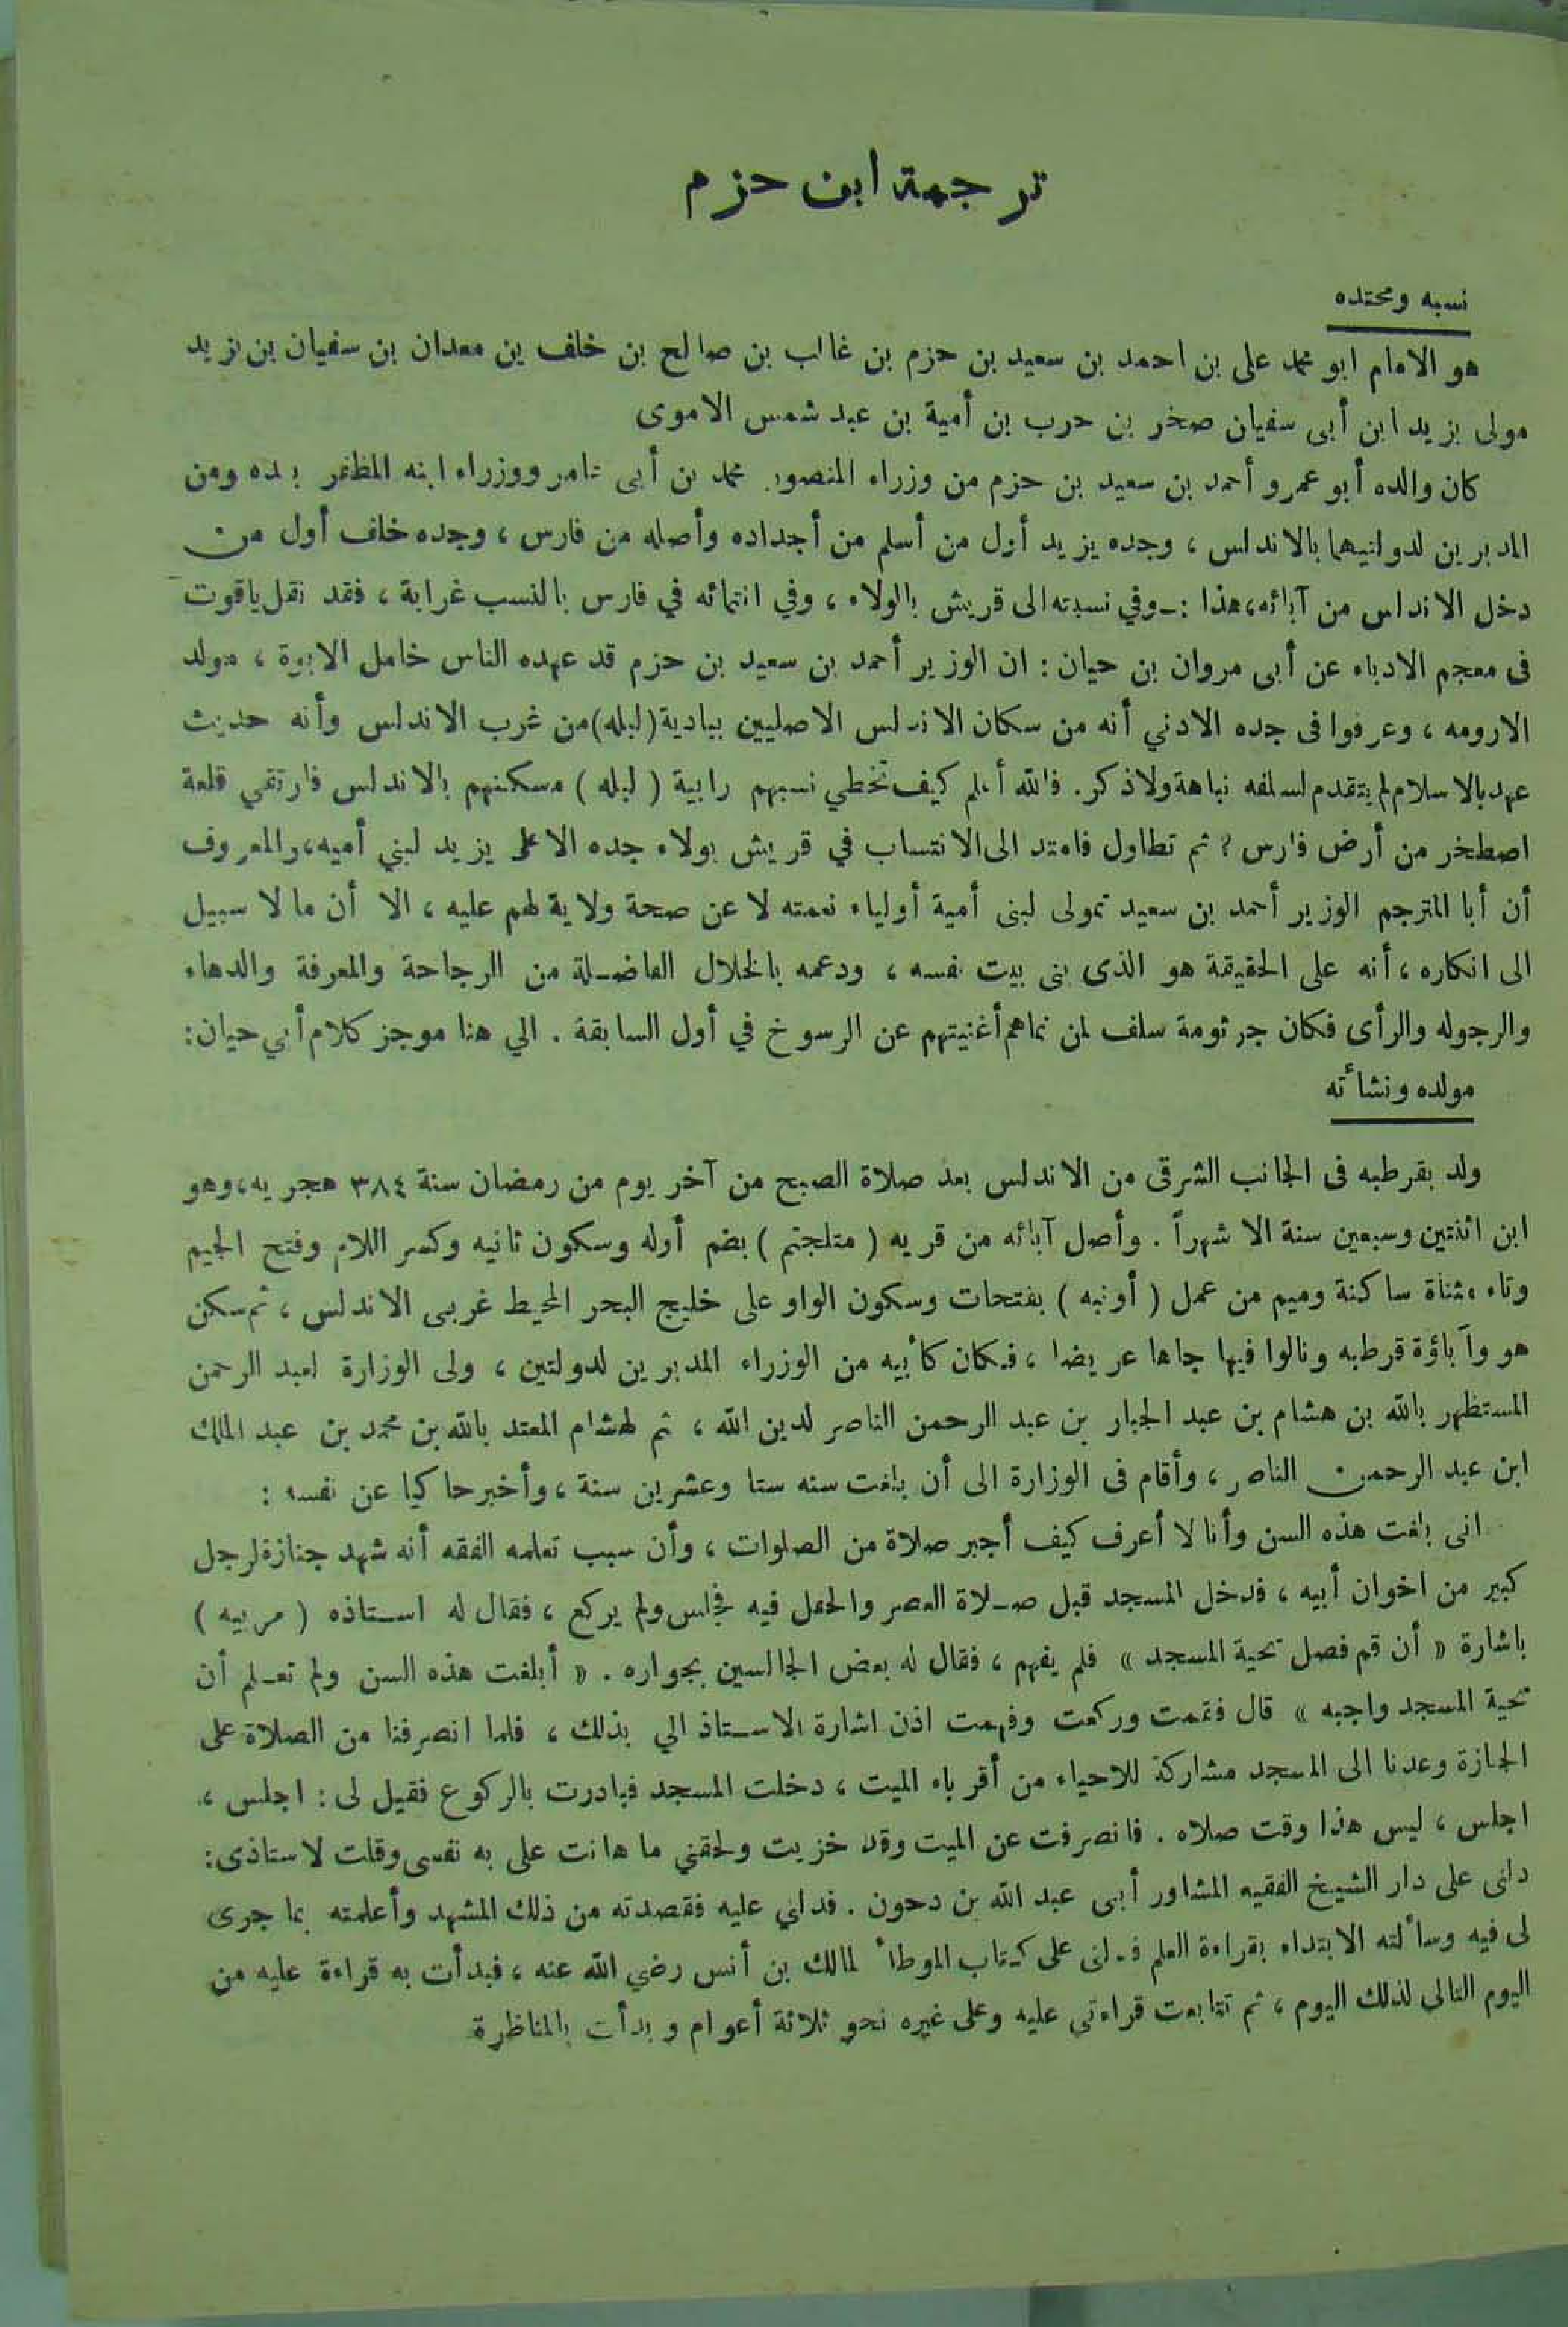 ترجمة ابن حزم
نسبه ومحتده
هو الامام ابو محمد على بن احمد بن سعيد بن حزم بن غالب بن صالح بن خلف بن معدان بن سفيان بن يزيد
مولى يزيد ابن أبى سفيان صخر بن حرب بن أمية بن عبد شمس الاموى
كان والده أبو عمرو أحمد بن سعيد بن حزم من وزراء المنصور محمد بن أبى عامر ووزراء ابنه المظفر بعده ومن
المدبرين لدولتيهما بالاندلس ، وجده يزيد أول من أسلم من أجداده وأصله من فارس ، وجده خلف أول من
دخل الاندلس من آبائه، هذا :ـ وفي نسبته الى قريش بالولاء ، وفي انتمائه في فارس بالنسب غرابة ، فقد نقل ياقوت
فى معجم الادباء عن أبى مروان بن حيان : ان الوزير أحمد بن سعيد بن حزم قد عهده الناس خامل الابوة ، مولد
الارومه ، وعرفوا فى جده الادني أنه من سكان الاندلس الاصليين ببادية (لبله) من غرب الاندلس وأنه حديث
عهد بالاسلام لم يتقدم لسلفه نباهة ولا ذكر. فالله أعلم كيف تخطي نسبهم رابية ( لبله ) مسكنهم بالاندلس فارتقي قلعة
اصطخر من أرض فارس ؟ ثم تطاول فامتد الى الانتساب في قريش بولاء جده الاعلى يزيد لبني أميه، والمعروف
أن أبا المترجم الوزير أحمد بن سعيد تمولى لبنى أمية أولياء نعمته لا عن صحة ولاية لهم عليه ، الا أن ما لا سبيل
الى انكاره ، أنه على الحقيقة هو الذى بنى بيت نفسه ، ودعمه بالخلال الفاضلة من الرجاحة والمعرفة والدهاء
والرجوله والرأى فكان جرثومة سلف لمن نماهم أغنيتهم عن الرسوخ في أول السابقة . الي هنا موجز كلام أبي حيان:
مولده ونشأته
ولد بقرطبه فى الجانب الشرقى من الاندلس بعد صلاة الصبح من آخر يوم من رمضان سنة ٣٨٤ هجريه، وهو
ابن اثنتين وسبعين سنة الا شهراً . وأصل آبائه من قريه ( متلجتم ) بضم أوله وسكون ثانيه وكسر اللام وفتح الجيم
وتاء مثناة ساكنة وميم من عمل ( أونبه ) بفتحات وسكون الواو على خليج البحر المحيط غربى الاندلس ، ثم سكن
هو وآباؤة قرطبه ونالوا فيها جاها عريضا ، فكان كأبيه من الوزراء المدبرين لدولتين ، ولى الوزارة لعبد الرحمن
المستظهر بالله بن هشام بن عبد الجبار بن عبد الرحمن الناصر لدين الله ، ثم لهشام المعتد بالله بن محمد بن عبد الملك
ابن عبد الرحمن الناصر ، وأقام فى الوزارة الى أن بلغت سنه ستا وعشرين سنة ، وأخبر حاكيا عن نفسه :
انى بلغت هذه السن وأنا لا أعرف كيف أجبر صلاة من الصلوات ، وأن سبب تعلمه الفقه أنه شهد جنازة لرجل
كبير من اخوان أبيه ، فدخل المسجد قبل صلاة العصر والحفل فيه فجلس ولم يركع ، فقال له استاذه ( مربيه )
باشارة « أن قم فصل تحية المسجد » فلم يفهم ، فقال له بعض الجالسين بجواره . « أبلغت هذه السن ولم تعلم أن
تحية المسجد واجبه » قال فقمت وركعت وفهمت اذن اشارة الاستاذ الي بذلك ، فلما انصرفنا من الصلاة على
الجازة وعدنا الى المسجد مشاركة للاحياء من أقرباء الميت ، دخلت المسجد فبادرت بالركوع فقيل لى : اجلس ،
اجلس ، ليس هذا وقت صلاه . فانصرفت عن الميت وقد خزيت ولحقني ما هانت على به نفسى وقلت لاستاذى :
دلنى على دار الشيخ الفقيه المشاور أبى عبد الله بن دحون . فدلني عليه فقصدته من ذلك المشهد وأعلمته بما جرى
لى فيه وسألته الابتداء بقراءة العلم فدلنى على كتاب الموطأ لمالك بن أنس رضي الله عنه ، فبدأت به قراءة عليه من
اليوم التالى لذلك اليوم ، ثم تتابعت قراءتي عليه وعلى غيره نحو ثلاثة أعوام وبدأت بالمناظرة